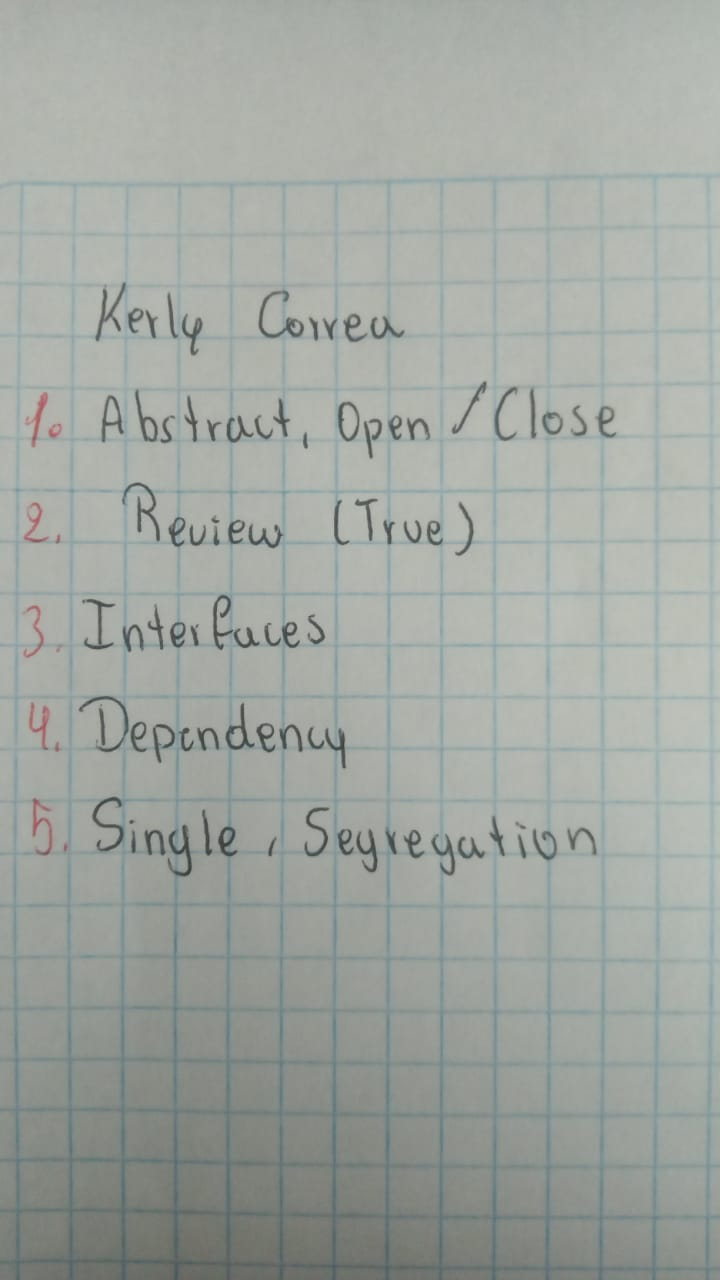 Kerly Correa
1. Abstract, Open / Close
2. Review (True)
3. Interfaces
4. Dependency
5. Single, Segregation